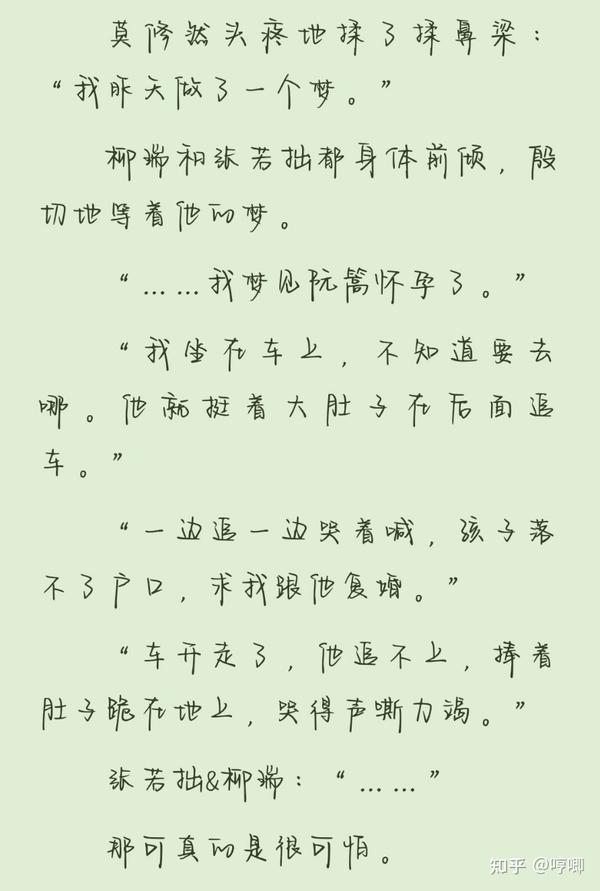 莫修然头疼地揉了揉鼻梁：
“我昨天做了一个梦。”
柳端和张若拙都身体前倾，殷
切地等着他的梦。
“……我梦见阮篙怀孕了。”
“我坐在车上，不知道要去
哪。他就挺着大肚子在后面追
车。”
“一边追一边哭着喊，孩子落
不了户口，求我跟他复婚。”
“车开走了，他追不上，捧着
肚子跪在地上，哭得声嘶力竭。”
张若拙&柳端：“……”
那可真的是很可怕。
知乎 @哼唧